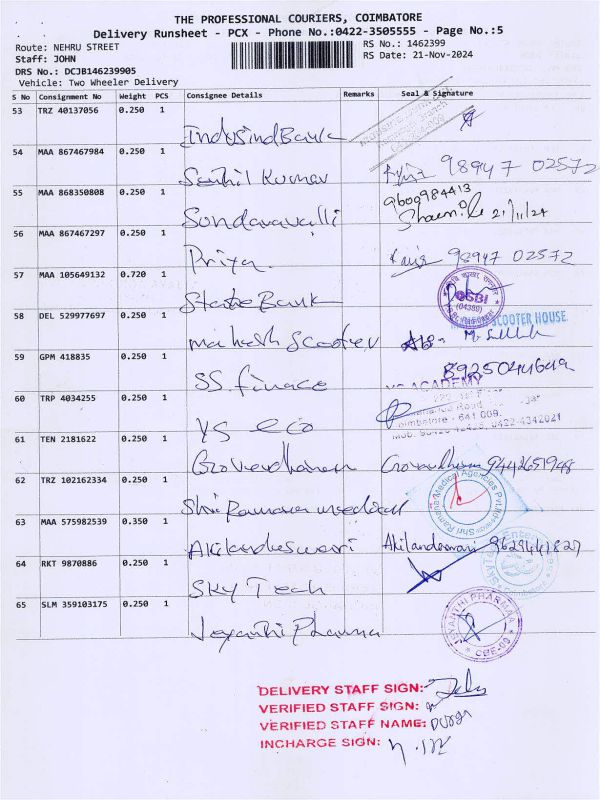 THE PROFESSIONAL COURIERS, COIMBATORE
Delivery Runsheet - PCX - Phone No.:0422-3505555 - Page No.:5
Route: NEHRU STREET RS No.: 1462399
Staff: JOHN RS Date: 21-Nov-2024
DRS No.: DCJB146239905
Vehicle: Two Wheeler Delivery
S No Consignment No Weight PCS Consignee Details Remarks Seal & Signature
53 TRZ 40137056 0.250 1
IndusindBank
54 MAA 867467984 0.250 1
Senthil Kumar 98947 02572
55 MAA 868350808 0.250 1
9600984413
Sondaravalli 21/11/24
56 MAA 867467297 0.250 1
Priya 98947 02572
57 MAA 105649132 0.720 1
State Bank SBI (04389)
58 DEL 529977697 0.250 1 SCOOTER HOUSE
mahesh Scooter
59 GPM 418835 0.250 1
SS finace
YS ACADEMY
60 TRP 4034255 0.250 1
Coimbatore - 641 009.
YS eco 0422-4342021
61 TEN 2181622 0.250 1
Goverdhanan 9442651948
62 TRZ 102162334 0.250 1
Shri Ramana medical Shri Ramana Medical Agencies Pvt.
63 MAA 575982539 0.350 1
Akilandeswari Akilandeswari 9629441827
64 RKT 9870886 0.250 1
Sky Tech
65 SLM 359103175 0.250 1
Jeyanthi Pharma JEYANTHI PHARMAA CBE-09
DELIVERY STAFF SIGN:
VERIFIED STAFF SIGN:
VERIFIED STAFF NAME: Durga
INCHARGE SIGN: